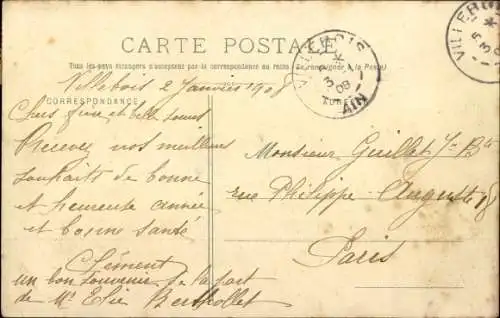 CARTE POSTALE
Tous les pays étrangers n'acceptent pas la correspondance au recto (Se renseigner à la Poste)
Villebois 2 Janvier 1908
CORRESPONDANCE
Chers frère et belle soeur
Recevez nos meilleurs
souhaits de bonne
et heureuse année
et bonne santé
Clément
un bon souvenir de la part
de Mr Elie Berthollet
Monsieur Guillet J-Bte
rue Philippe-Auguste 18
Paris
VILLEBOIS
3
08
AIN
VILLEBOIS